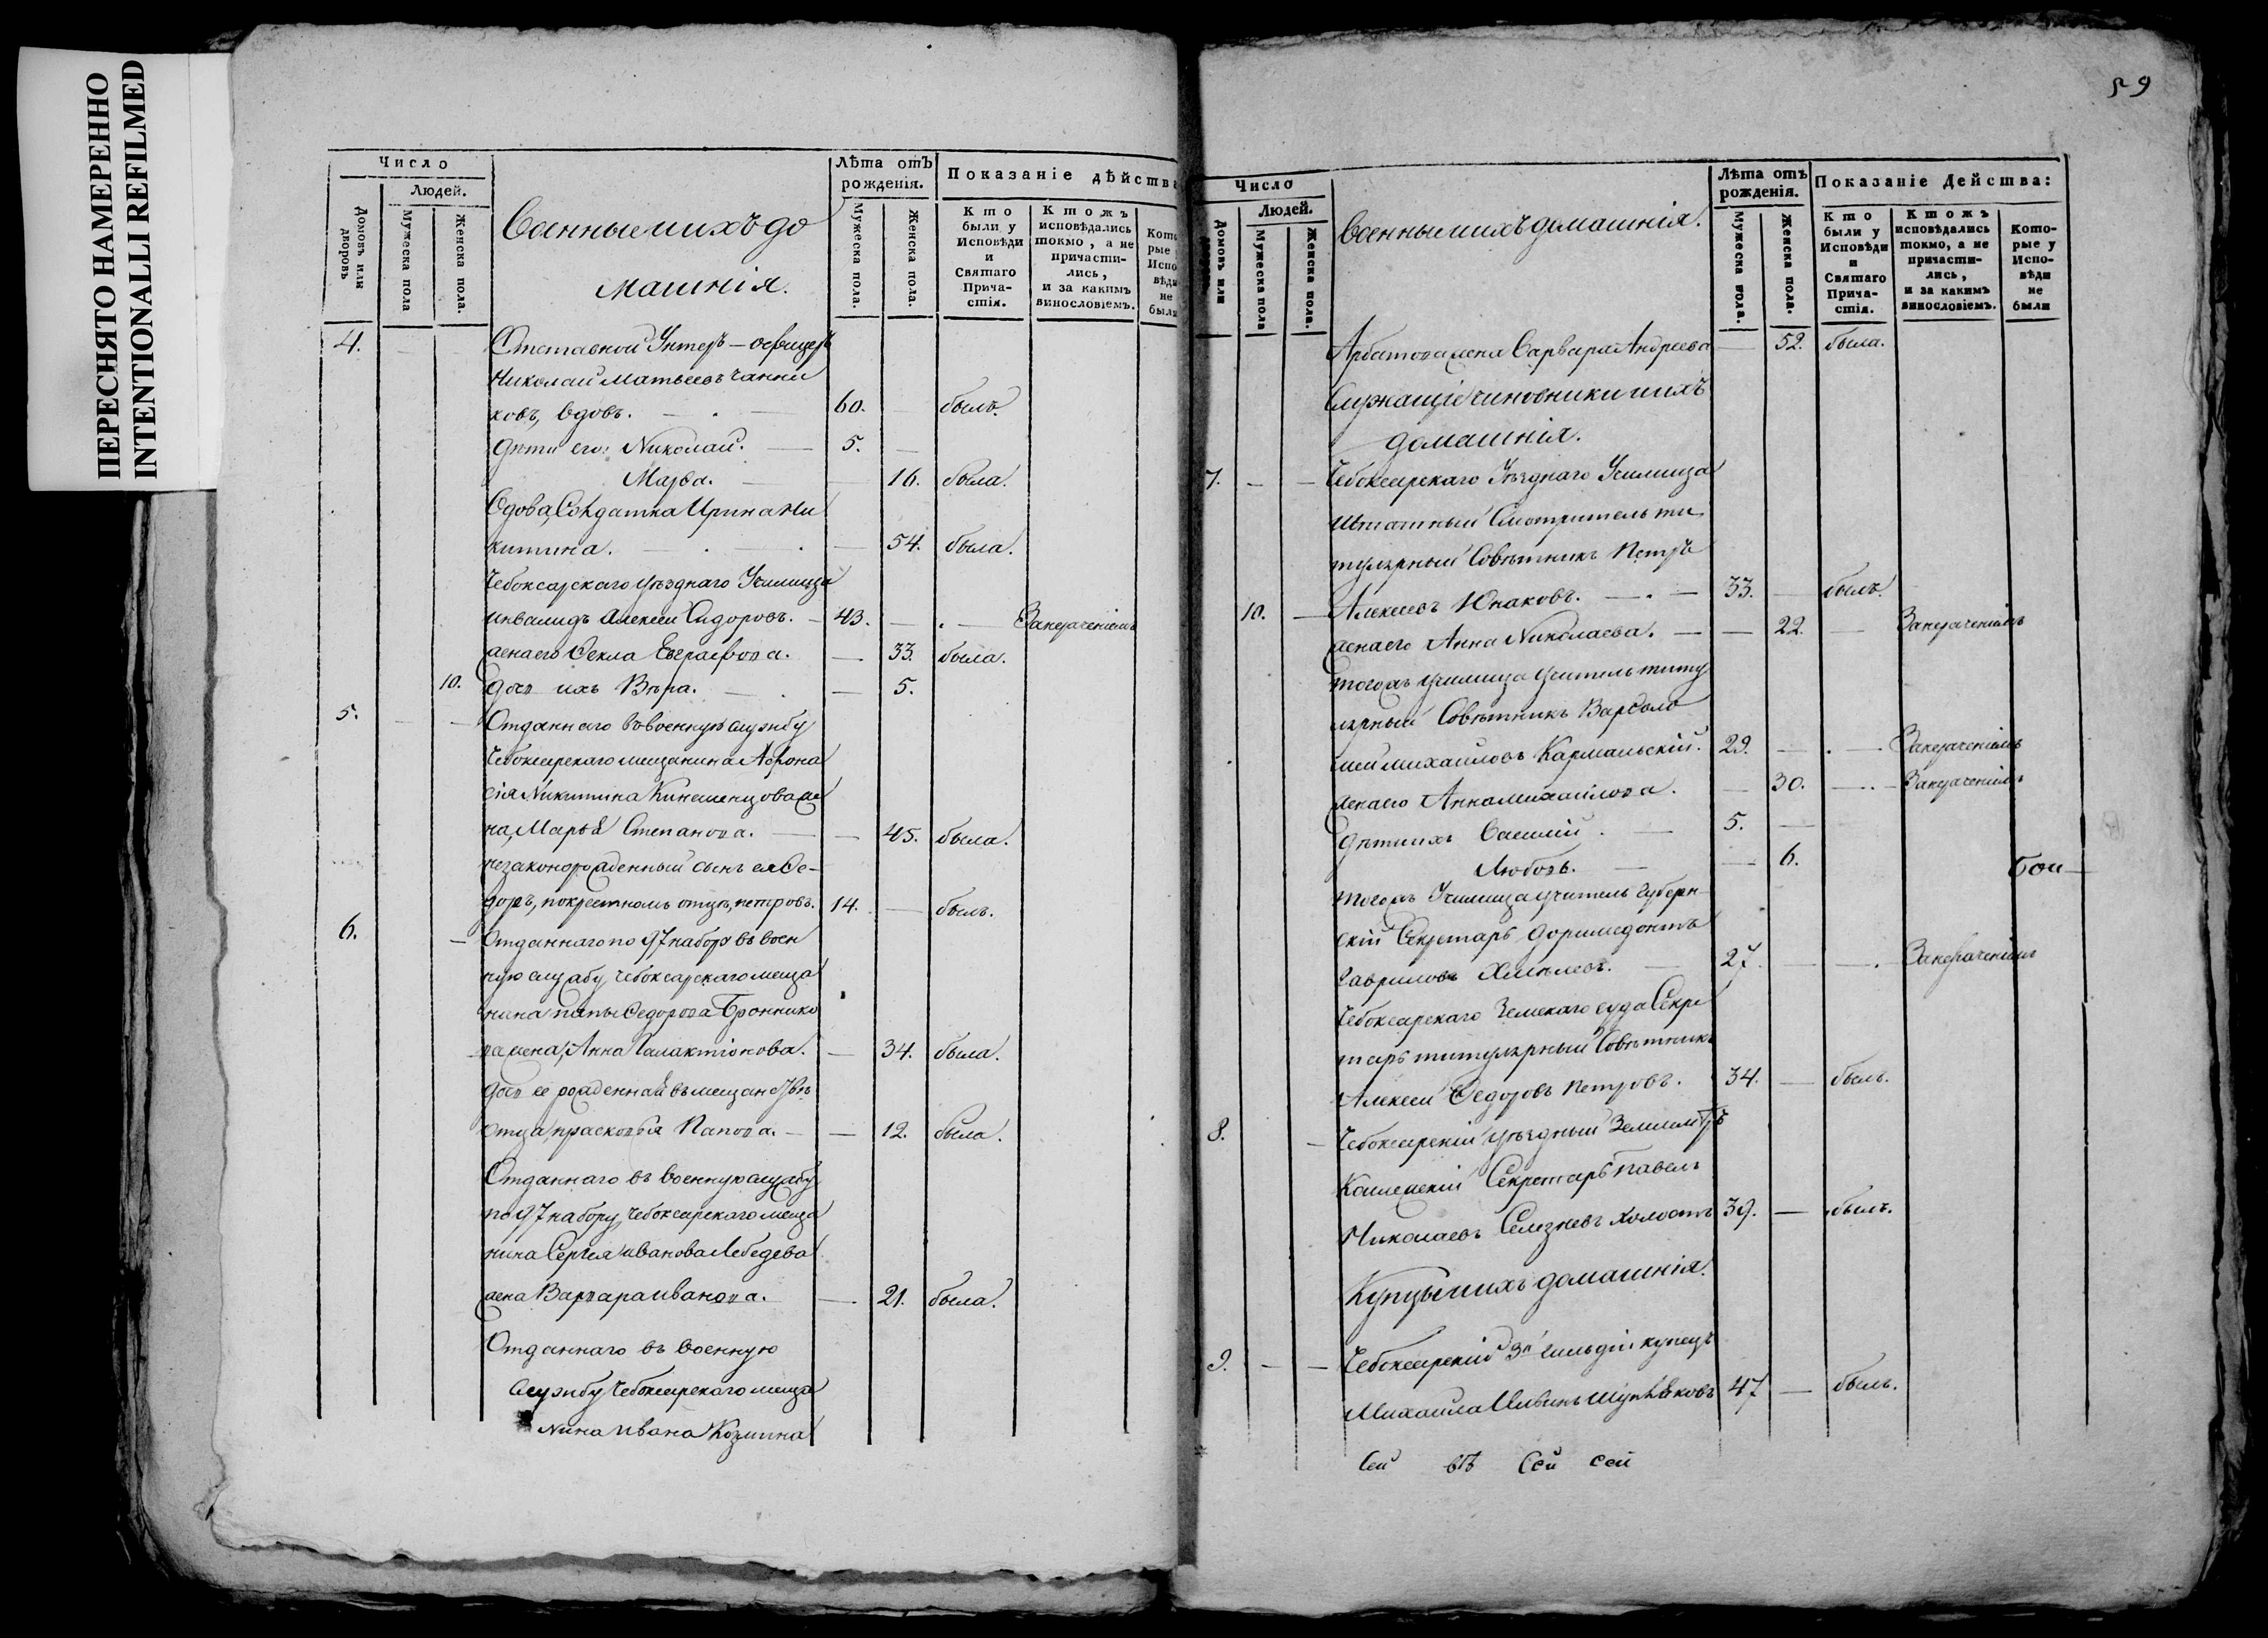 ПЕРЕСНЯТО НАМЕРЕННО
INTENTIONALLI REFILMED
Число
Людей.
Домовъ или дворовъ
Мужеска пола
Женска пола.
Военные и ихъ до
машнія.
Лѣта отъ рожденія.
Мужеска пола.
Женска пола.
Показаніе дѣйства
Кто были у Исповѣди и Святаго Прича- стія.
Ктожъ исповѣдались токмо, а не причасти- лись, и за какимъ винословіемъ.
4. Отставной Унтеръ-офицеръ
Николай Матвеевъ
ковъ, вдовъ. 60. былъ.
Дѣти его: Николай. 5.
Марѳа. 16. была.
Вдова, Солдатка Ирина Ни
китина. 54. была.
Чебоксарскаго уѣзднаго Училища
инвалидъ Алексей Сидоровъ. 43.
жена его Ѳекла 33. была.
10. дочь ихъ Вѣра. 5.
5. Отданнаго въ военную службу
Чебоксарскаго мещанина Афона
сія Никитина же
на, Марья Степанова. 45. была.
незаконорожденный сынъ ея Ѳе-
доръ, по крестномъ отцѣ, петровъ. 14. былъ.
6. Отданнаго по 97 набору въ воен
ную службу чебоксарскаго меща
нина Федорова Бронников
жена, Анна Галактіонова. 34. была.
дочь ее рожденная въ мещанствѣ
отца, прасковья 12. была.
Отданнаго въ военную службу
по 97 набору, чебоксарскаго меща
нина Сергея иванова Лебедева
жена Варвара иванова. 21. была.
Отданнаго въ военную
службу Чебоксарскаго меща
нина ивана Козмина
59
Число
Людей.
Домовъ или
Мужеска пола
Женска пола.
Военные и ихъ домашнія.
Лѣта отъ рожденія.
Мужеска пола.
Женска пола.
Показаніе Действа:
Кто были у Исповѣди и Святаго Прича- стія.
Ктожъ исповѣдались токмо, а не причасти- лись, и за какимъ винословіемъ.
Кото- рые у Испо- вѣди не были
Арбатова жена Варвара Андреева 52. была.
Служащіе чиновники и ихъ
домашнія.
7. Чебоксарскаго Уѣзднаго Училища
Штатный Смотритель ти
тулярный Совѣтникъ Петръ
10. Алексеевъ Юнаковъ. 33. былъ.
жена его Анна Николаева. 22.
тогожъ училища учитель титу
лярный Совѣтникъ Варѳоло
мей михайловъ Кармальскій. 29.
жена его Анна михайлова. 30.
дѣти ихъ Василій. 5.
Любовь. 6.
тогожъ Училища учитель губерн
скій Секретарь Доримедонтъ
Гавриловъ Хмѣлевъ. 27.
Чебоксарскаго Земскаго суда Секре
тарь титулярный Совѣтникъ
Алексей Ѳедоровъ Петровъ. 34. былъ.
8. Чебоксарскій уѣздный Землемѣръ
Секретарь Павелъ
Николаевъ Селезневъ холостъ 39. былъ.
Купцы и ихъ домашнія.
9. Чебоксарскій 3й гильдіи купецъ
Михаила 47 былъ.